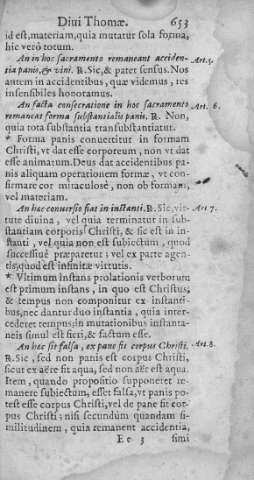 Diui Thomæ. 653
id est, materiam, quia mutatur sola forma,
hic verò totum.
An in hoc sacramento remaneant acciden- Art. 5.
tia panis, & vini. R. Sic, & patet sensus. Nos
autem in accidentibus, quæ videmus, res
insensibiles honoramus.
An facta consecratione in hoc sacramento Art. 6.
remaneat forma substantialis panis. R. Non,
quia tota substantia transubstantiatur.
* Forma panis conuertitur in formam
Christi, vt dat esse corporeum, non vt dat
esse animatum. Deus dat accidentibus pa-
nis aliquam operationem formæ, vt con-
firmare cor miraculosè, non ob formam,
vel materiam.
An hæc conuersio fiat in instanti. R. Sic, vir- Art. 7.
tute diuina, vel quia terminatur in sub-
stantiam corporis Christi, & sic est in in-
stanti, vel quia non est subiectum, quod
successiuè præparetur; vel ex parte agen-
tis, quod est infinitæ virtutis.
* Vltimum instans prolationis verborum
est primum instans, in quo est Christus;
& tempus non componitur ex instanti-
bus, nec dantur duo instantia, quia inter-
cederet tempus; in mutationibus instanta-
neis simul est fieri, & factum esse.
An hæc sit falsa, ex pane fit corpus Christi. Art. 8.
R. Sic, sed non panis est corpus Christi,
sicut ex aëre fit aqua, sed non aër est aqua.
Item, quando propositio supponeret re-
manere subiectum, esset falsa, vt panis po-
test esse corpus Christi, vel de pane fit cor-
pus Christi; nisi secundum quandam si-
militudinem, quia remanent accidentia,
Ee 3 simi